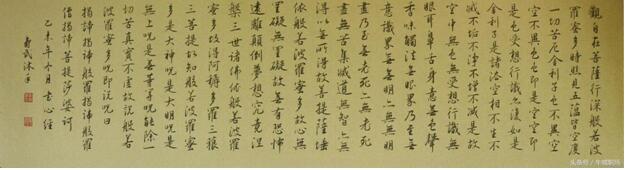 觀自在菩薩行深般若波
羅蜜多時照見五蘊皆空度
一切苦厄舍利子色不異空
空不異色色即是空空即
是色受想行識亦復如是
舍利子是諸法空相不生不
滅不垢不淨不增不減是故
空中無色無受想行識無
眼耳鼻舌身意無色聲
香味觸法無眼界乃至無
意識界無無明亦無無明
盡乃至無老死亦無老死
盡無苦集滅道無智亦無
得以無所得故菩提薩埵
依般若波羅蜜多故心無
罣礙無罣礙故無有恐怖
遠離顛倒夢想究竟涅
槃三世諸佛依般若波羅
蜜多故得阿耨多羅三藐
三菩提故知般若波羅蜜
多是大神咒是大明咒是
無上咒是無等等咒能除
一切苦真實不虛故說般若
波羅蜜多咒即說咒曰
揭諦揭諦般羅揭諦般羅
僧揭諦菩提莎婆訶
乙未年月書心經
武沐手
头条号